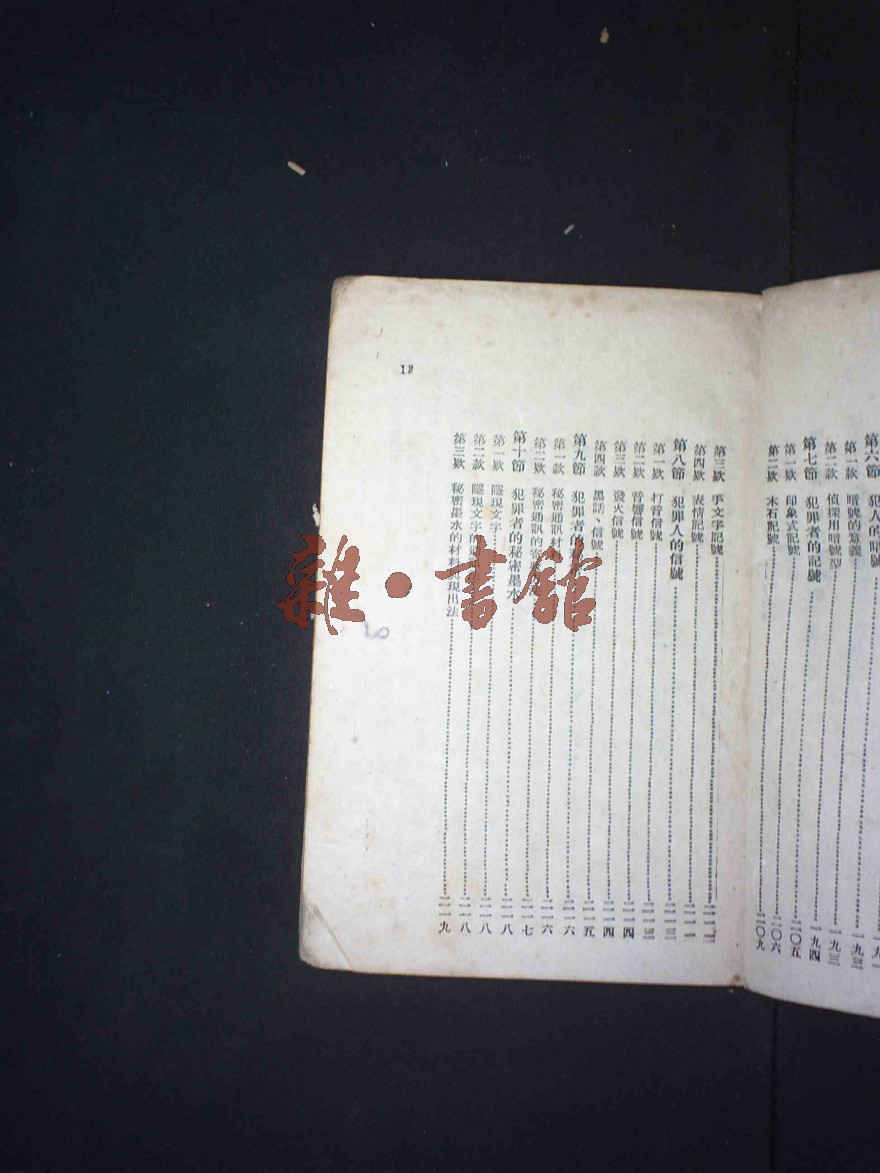 第六節 犯人的暗號
第一款 暗號的意義
第二款 偵探用暗號型 一九三
第七節 犯罪者的記號 一九四
第一欵 印象式記號 二〇五
第二欵 木石記號 二〇六
二〇九
第三欵 手文字記號
第四欵 表情記號
第八節 犯罪人的信號 二一三
第一欵 打音信號
第二欵 音響信號 二一四
第三欵 發火信號 二一四
第四款 黑話、信號 二一五
第九節 犯罪者的 二一六
第一款 秘密通訊材 二一六
第二欵 秘密通訊的 二一七
第十節 犯罪者的秘密墨水 二一八
第一欵 隱現文字 二一八
第二款 隱現文字的 二一八
第三欵 秘密墨水的材料 現出法 二一九
雜·書館